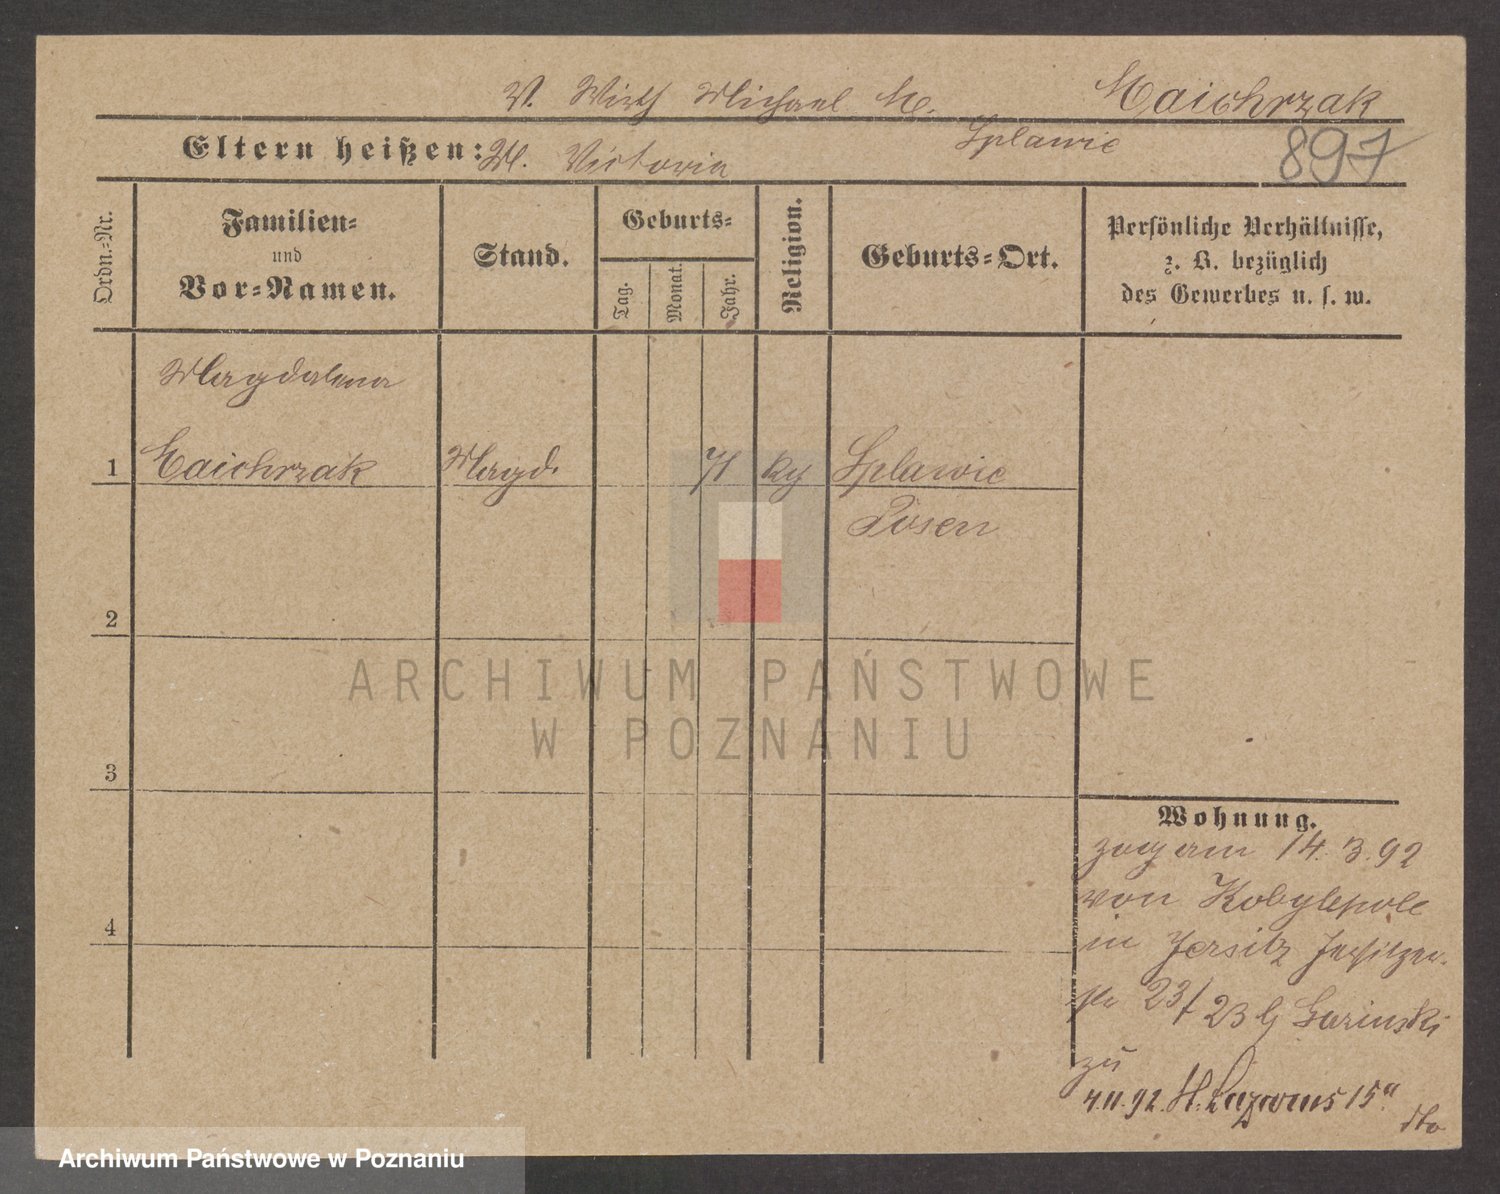 V. Wirth Michael M. Maichrzak
Eltern heißen: M. Victoria Splawie
897
Ordn.-Nr.
Familien-
und
Vor-Namen.
Stand.
Geburts-
Tag.
Monat.
Jahr.
Religion.
Geburts-Ort.
Persönliche Verhältnisse,
z. B. bezüglich
des Gewerbes u. s. w.
Magdalena
1 Maichrzak Magd. 71 Splawie
Posen
2
3
4
Wohnung.
zog am 14.3.92
von Kobylepole
in Jersitz Jersitzer-
str 23/23 b
zu
4.11.92. St. Lazarus 15a
ARCHIWUM PAŃSTWOWE
W POZNANIU
Archiwum Państwowe w Poznaniu